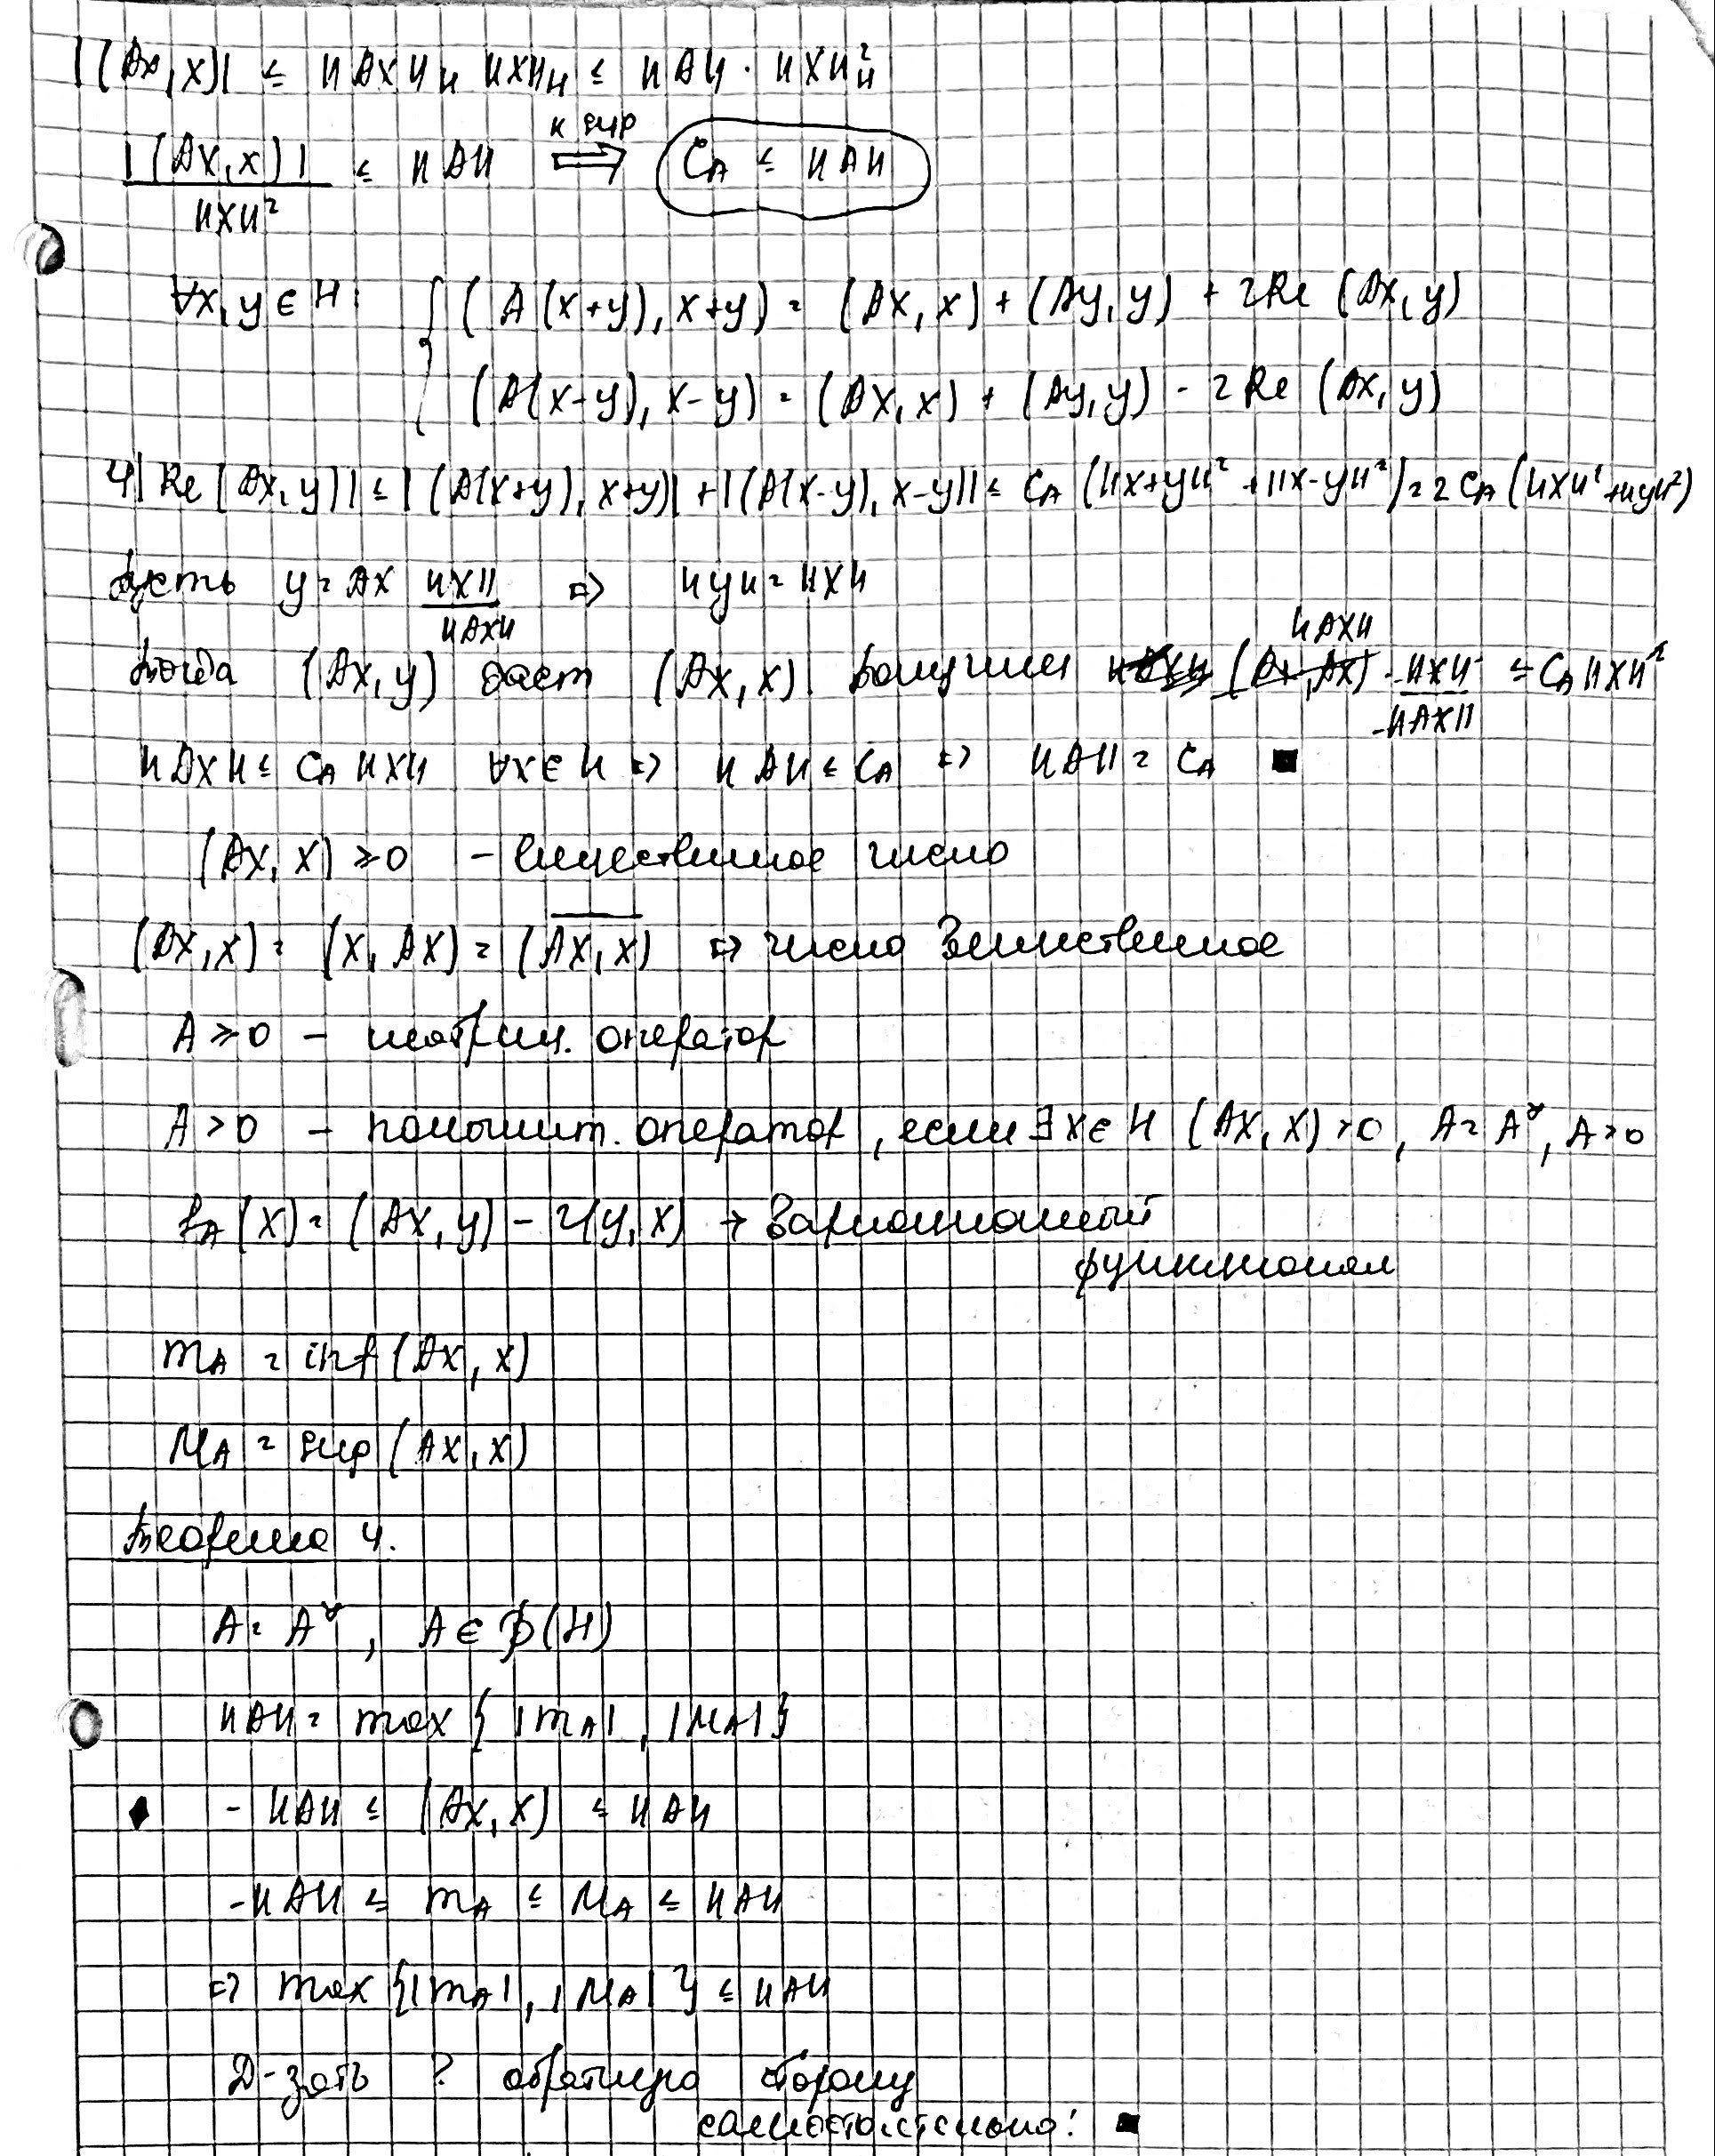 |(Ax, x)| ≤ ||Ax||_H ||x||_H ≤ ||A|| · ||x||²_H
|(Ax, x)| / ||x||² ≤ ||A|| к sup ⟹ C_A ≤ ||A||
∀x, y ∈ H: { (A(x+y), x+y) = (Ax, x) + (Ay, y) + 2Re (Ax, y)
(A(x-y), x-y) = (Ax, x) + (Ay, y) - 2Re (Ax, y)
4|Re (Ax, y)| ≤ |(A(x+y), x+y)| + |(A(x-y), x-y)| ≤ C_A (||x+y||² + ||x-y||²) = 2C_A (||x||² + ||y||²)
Пусть y = Ax ||x|| / ||Ax|| ⇒ ||y|| = ||x||
Тогда (Ax, y) даст (Ax, x). Получим ||Ax|| · ||x|| / ||Ax|| ≤ C_A ||x||²
||Ax|| ≤ C_A ||x|| ∀x ∈ H ⇒ ||A|| ≤ C_A ⇒ ||A|| = C_A ■
(Ax, x) ≥ 0 – вещественное число
(Ax, x) = (x, Ax) = \overline{(Ax, x)} ⇒ число вещественное
A ≥ 0 – неотриц. оператор
A > 0 – положит. оператор, если ∃ x ∈ H (Ax, x) > 0, A = A*, A > 0
f_A(x) = (Ax, y) - 2(y, x) → вариационный
функционал
m_A = inf (Ax, x)
M_A = sup (Ax, x)
Теорема 4.
A = A*, A ∈ (H)
||A|| = max { |m_A|, |M_A| }
♦ - ||A|| ≤ (Ax, x) ≤ ||A||
-||A|| ≤ m_A ≤ M_A ≤ ||A||
⇒ max {|m_A|, |M_A|} ≤ ||A||
Д-зать ? обратную сторону
самостоятельно! ■